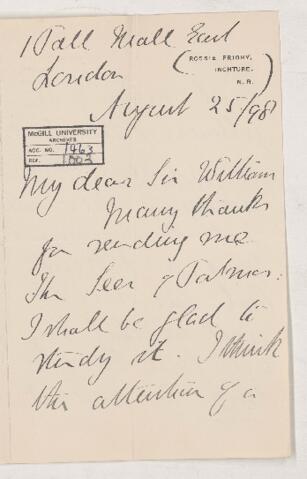 1 Pall Mall East
London
(ROSSIE PRIORY,
INCHTURE,
N.B.)
August 25/98
McGILL UNIVERSITY
ARCHIVES
ACC. NO. 1463
REF. 1002
My dear Sir William
Many thanks
for sending me
The Seer of Patmos:
I shall be glad to
study it. I think
the attention of a